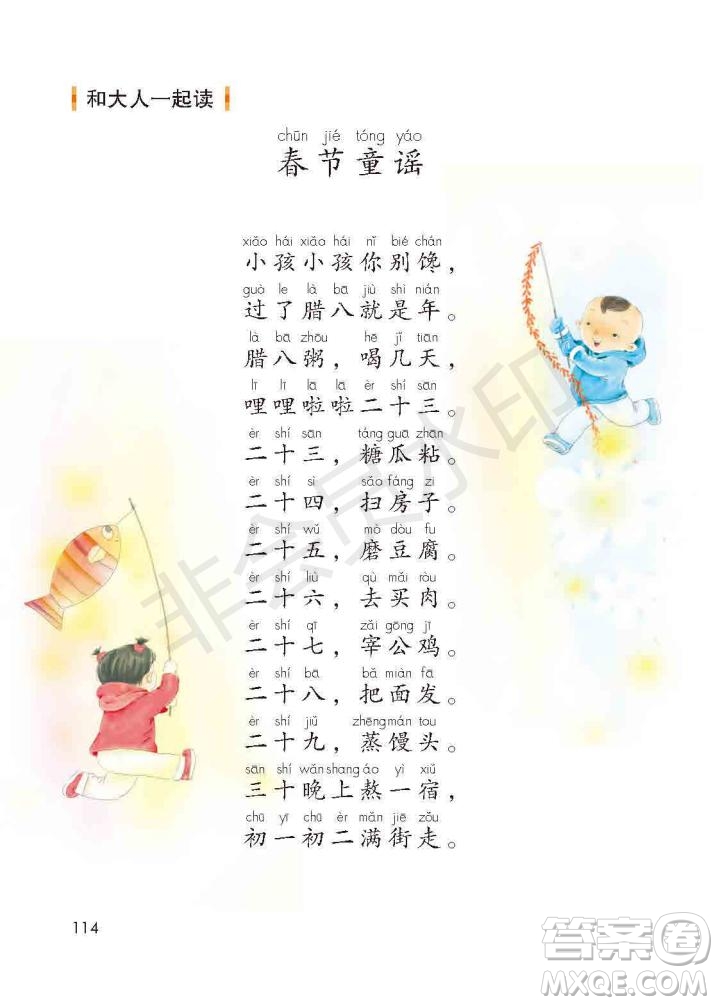 和大人一起读
chūn jié tóng yáo
春节童谣
xiǎo hái xiǎo hái nǐ bié chán
小孩小孩你别馋，
guò le là bā jiù shì nián
过了腊八就是年。
là bā zhōu hē jǐ tiān
腊八粥，喝几天，
lī lī lā lā èr shí sān
哩哩啦啦二十三。
èr shí sān táng guā zhān
二十三，糖瓜粘。
èr shí sì sǎo fáng zi
二十四，扫房子。
èr shí wǔ mò dòu fu
二十五，磨豆腐。
èr shí liù qù mǎi ròu
二十六，去买肉。
èr shí qī zǎi gōng jī
二十七，宰公鸡。
èr shí bā bǎ miàn fā
二十八，把面发。
èr shí jiǔ zhēng mán tou
二十九，蒸馒头。
sān shí wǎn shang áo yì xiǔ
三十晚上熬一宿，
chū yī chū èr mǎn jiē zǒu
初一初二满街走。
114
非会员水印
答案圈
MXQE.COM